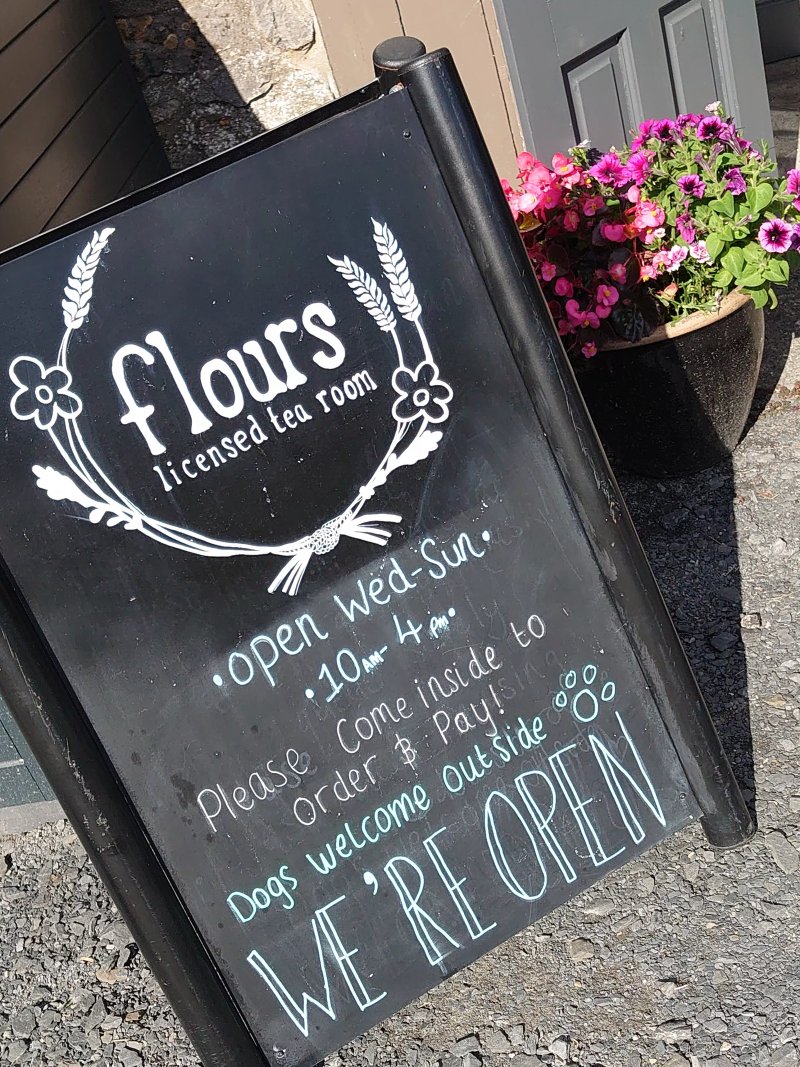 flours
licensed tea room
• open Wed-Sun •
• 10AM - 4 PM •
Please Come inside to
order & Pay!
Dogs welcome outside
WE'RE OPEN